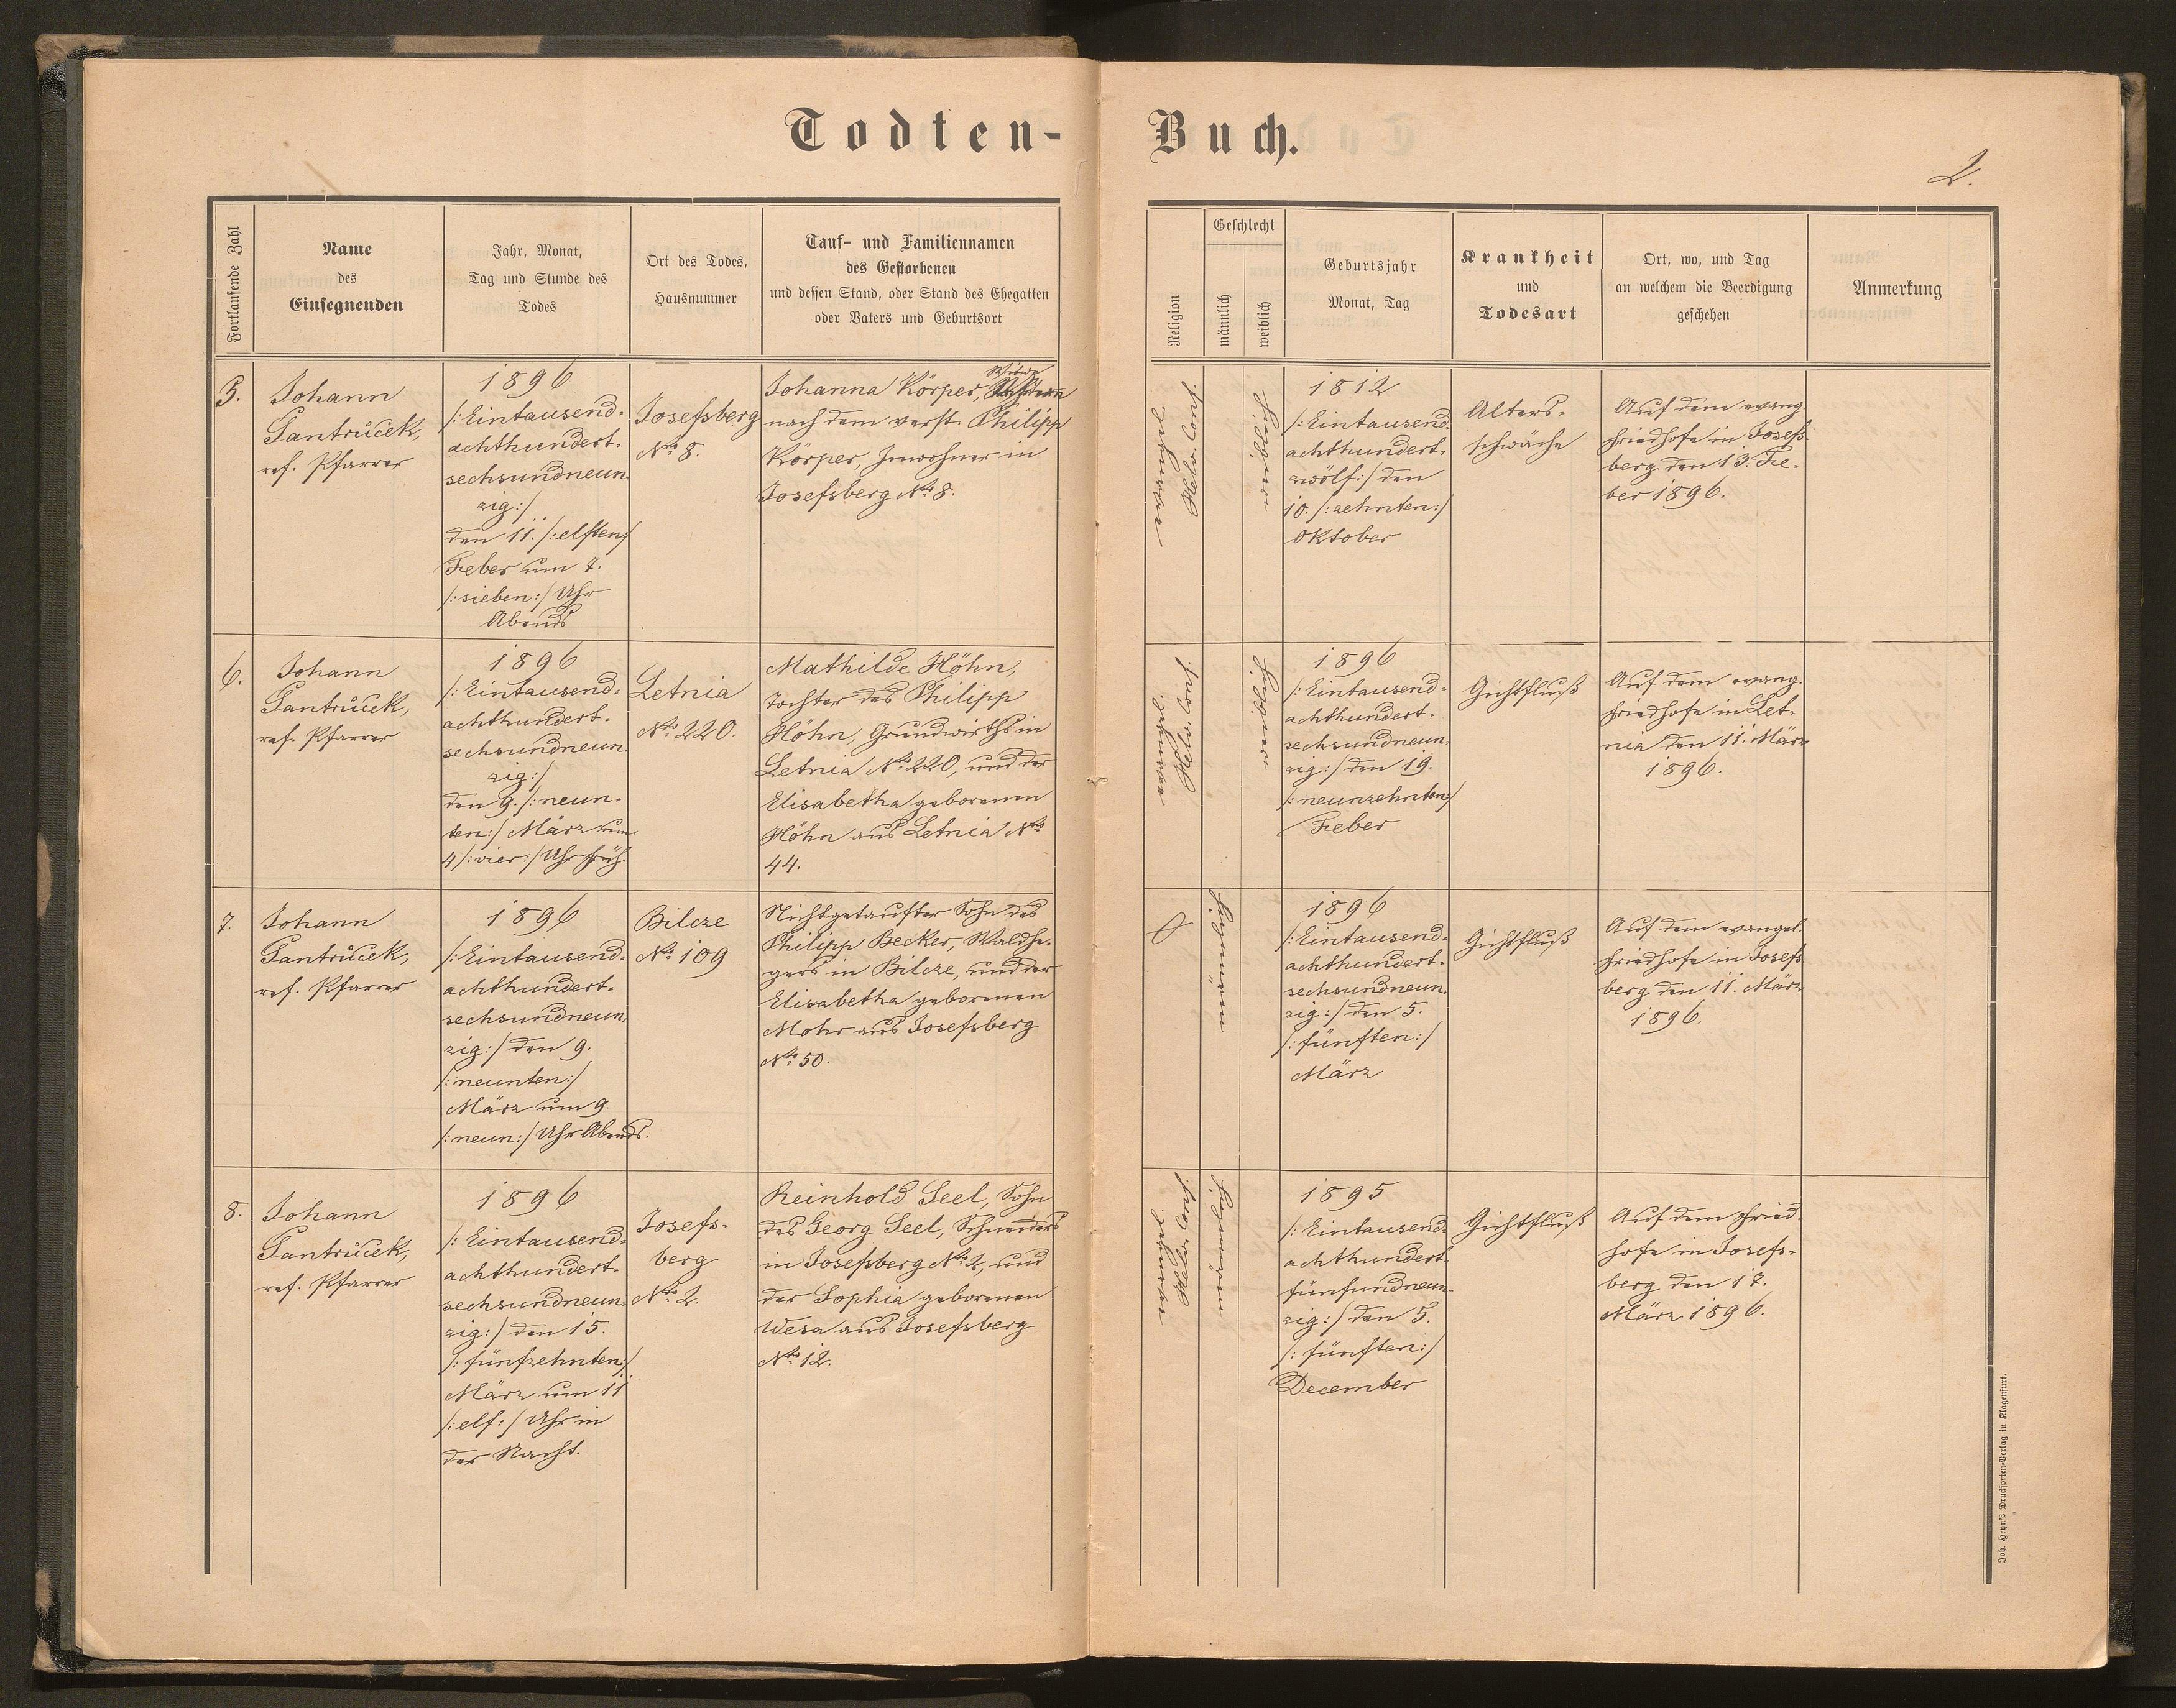 Todten-Buch.
2.
Fortlaufende Zahl
Name
des
Einsegnenden
Jahr, Monat,
Tag und Stunde des
Todes
Ort des Todes,
Hausnummer
Tauf- und Familiennamen
des Gestorbenen
und dessen Stand, oder Stand des Ehegatten
oder Vaters und Geburtsort
Religion
Geschlecht
männlich
weiblich
Geburtsjahr
Monat, Tag
Krankheit
und
Todesart
Ort, wo, und Tag
an welchem die Beerdigung
geschehen
Anmerkung
5.
Johann
Jantrůcek,
ref. Pfarrer
1896
/:Eintausend-
achthundert-
sechsundneun-
zig:/
den 11. /:elften:/
Feber um 7.
/:sieben:/ Uhr
Abends
Josefsberg
Nro 8.
Johanna Körper, Witwe
nach dem verst. Philipp
Körper, Inwohner in
Josefsberg Nro 8.
Helv. Conf.
1812
/:Eintausend-
achthundert-
zwölf:/ den
10. /:zehnten:/
Oktober
Alters-
schwäche
Auf dem evang.
Friedhofe in Josefs-
berg den 13. Fe-
ber 1896.
6.
Johann
Jantrůcek,
ref. Pfarrer
1896
/:Eintausend-
achthundert-
sechsundneun-
zig:/
den 9. /:neun-
ten:/ März um
4 /:vier:/ Uhr früh.
Letnia
Nro 220.
Mathilde Höhn,
Tochter des Philipp
Höhn, Grundwirths in
Letnia Nro 220, und der
Elisabetha geborenen
Höhn aus Letnia Nro
44.
Helv. Conf.
1896
/:Eintausend-
achthundert-
sechsundneun-
zig:/ den 19.
/:neunzehnten:/
Feber
Gichtfluß
Auf dem evang.
Friedhofe in Let-
nia den 11. März
1896.
7.
Johann
Jantrůcek,
ref. Pfarrer
1896
/:Eintausend-
achthundert-
sechsundneun-
zig:/ den 9.
/:neunten:/
März um 9.
/:neun:/ Uhr Abends.
Bilcze
Nro 109
Nichtgetaufter Sohn des
Philipp Becker, Waldhe-
gers in Bilcze, und der
Elisabetha geborenen
Mohr aus Josefsberg
Nro 50.
1896
/:Eintausend-
achthundert-
sechsundneun-
zig:/ den 5.
/:fünften:/
März
Gichtfluß
Auf dem evangel.
Friedhofe in Josefs-
berg den 11. März
1896.
8.
Johann
Jantrůcek,
ref. Pfarrer
1896
/:Eintausend-
achthundert-
sechsundneun-
zig:/ den 15.
/:fünfzehnten:/
März um 11
/:elf:/ Uhr in
der Nacht.
Josefs-
berg
Nro 2.
Reinhold Seel, Sohn
des Georg Seel, Schneiders
in Josefsberg Nro 2, und
der Sophia geborenen
Wesa aus Josefsberg
Nro 12.
Helv. Conf.
1895
/:Eintausend-
achthundert-
fünfundneun-
zig:/ den 5.
/:fünften:/
December
Gichtfluß
Auf dem Fried-
hofe in Josefs-
berg den 17.
März 1896.
Joh. Heyn's Drucksorten-Verlag in Klagenfurt.